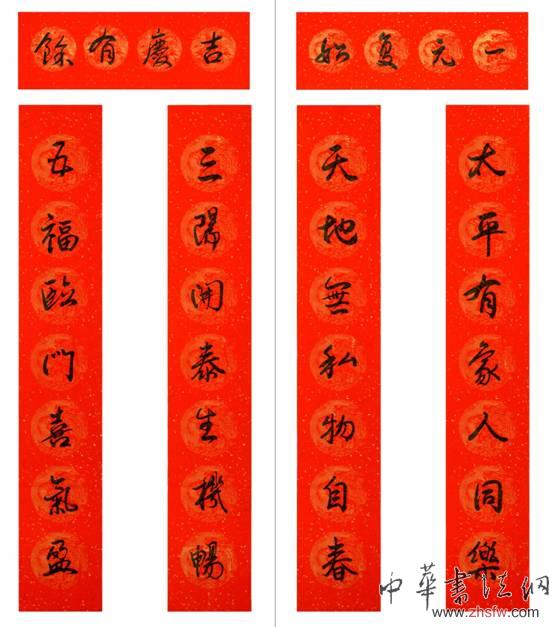 一元复始
太平有象人同樂
天地無私物自春
吉慶有餘
三陽開泰生機暢
五福臨門喜氣盈
中華書法網
www.zhsfw.com